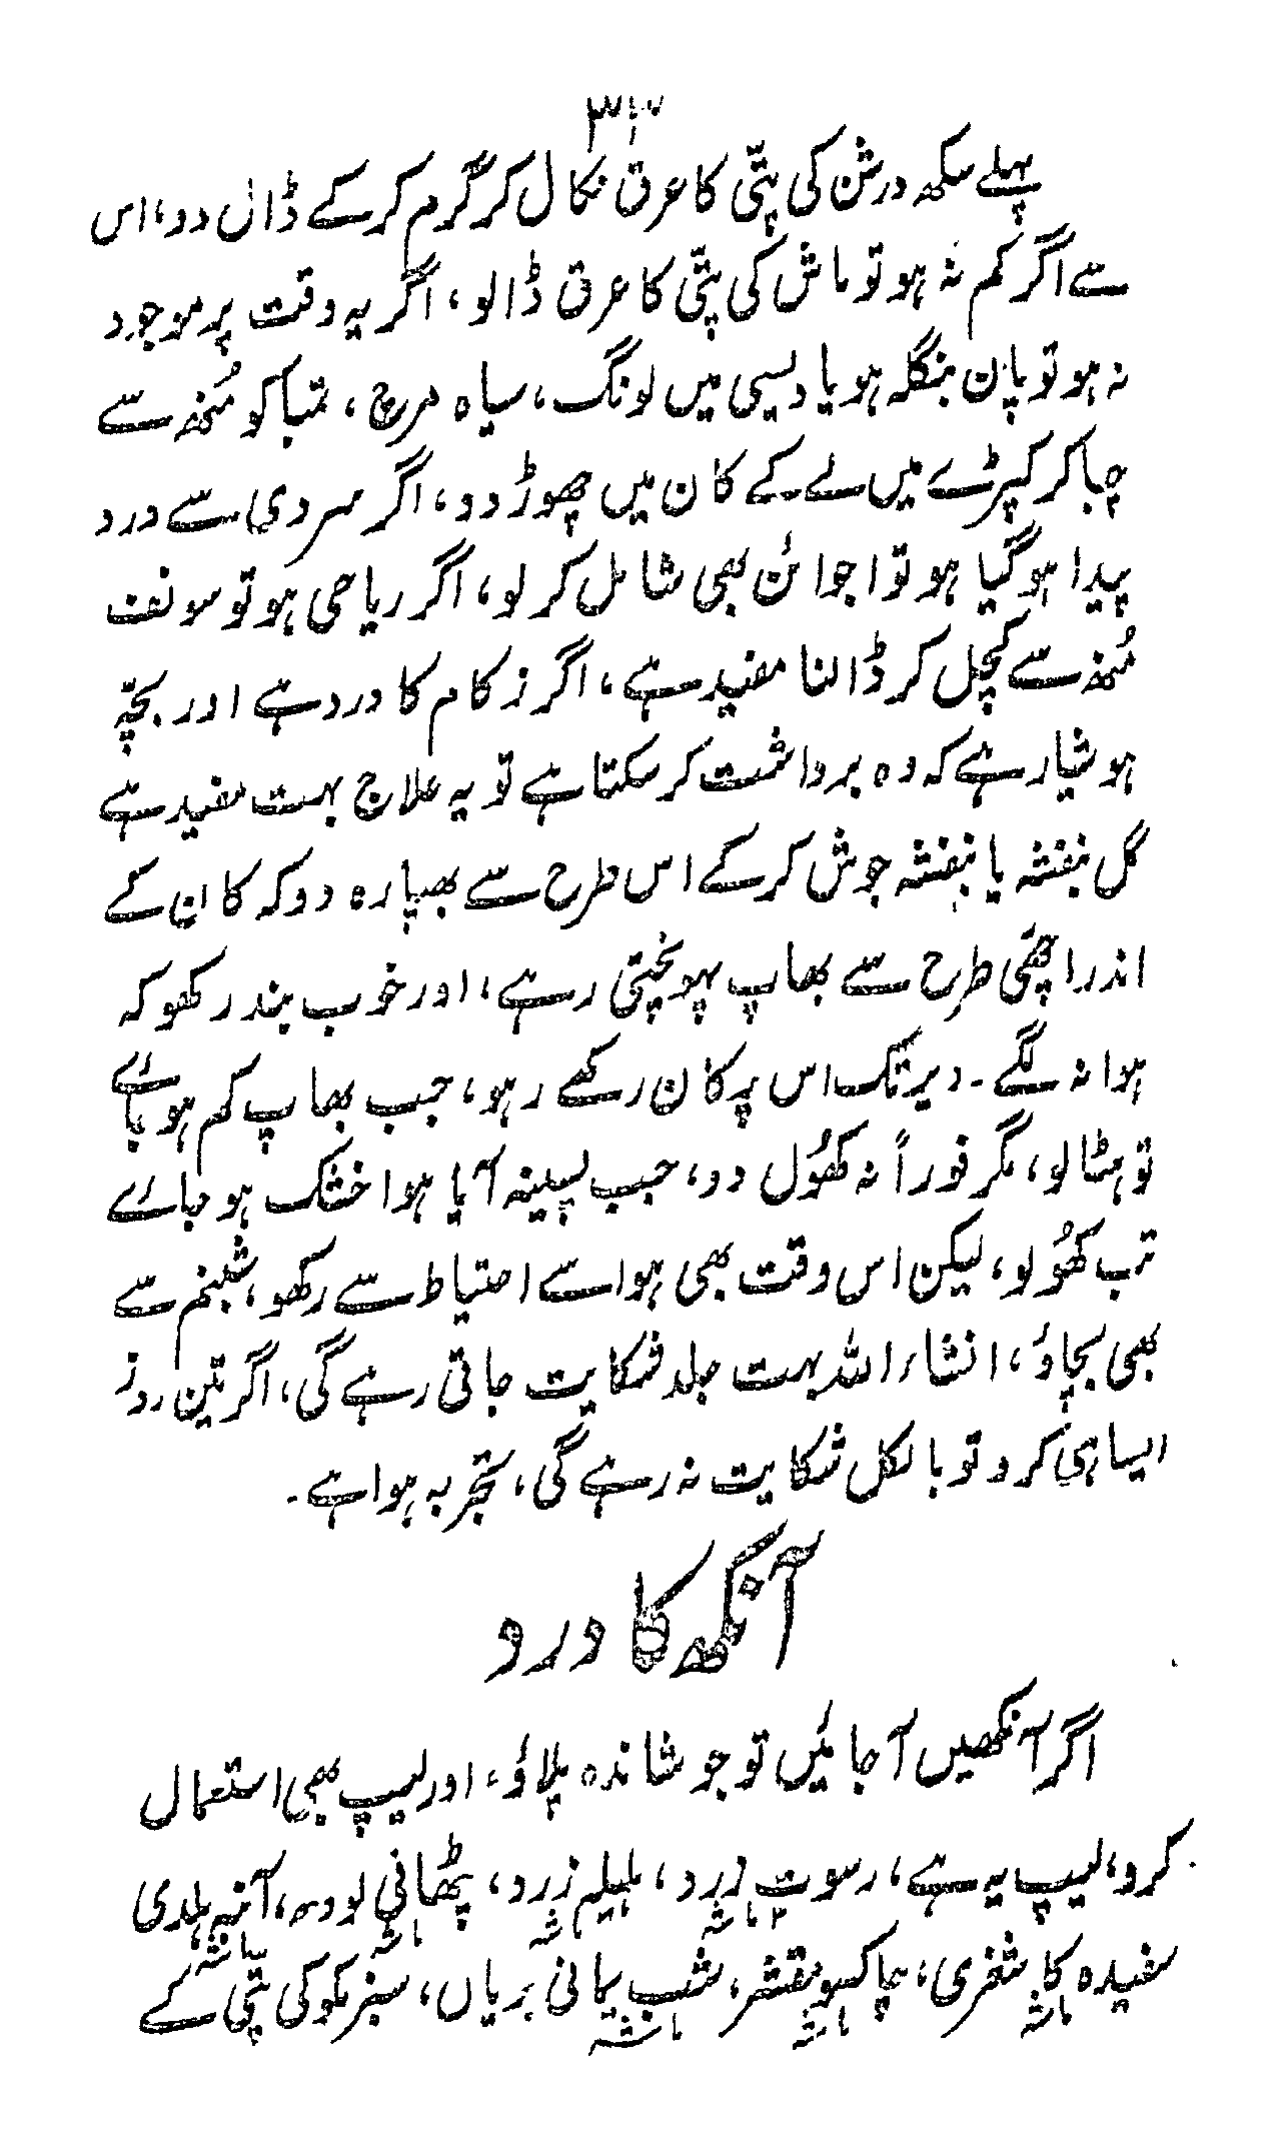 ۳۳
پہلے سکھ درشن کی پتّی کا عرق نکال کر گرم کرکے ڈال دو، اس
سے اگر کم نہ ہو تو ماش کی پتّی کا عرق ڈالو، اگر یہ وقت پر موجود
نہ ہو تو پان بنگلہ ہو یا دیسی میں لونگ، سیاہ مرچ، تمباکو مُنھ سے
چبا کر کپڑے میں لے کے کان میں چھوڑ دو، اگر سردی سے درد
پیدا ہوگیا ہو تو اجوائن بھی شامل کر لو، اگر ریاحی ہو تو سونف
مُنھ سے کچل کر ڈالنا مفید ہے، اگر زکام کا درد ہے اور بچّہ
ہوشیار ہے کہ وہ برداشت کر سکتا ہے تو یہ علاج بہت مفید ہے
گل بنفشہ یا بنفشہ جوش کرکے اس طرح سے بھپارہ دو کہ کان کے
اندر اچھّی طرح سے بھاپ پہونچتی رہے، اور خوب بند رکھو کہ
ہوا نہ لگے۔ دیر تک اس پر کان رکھے رہو، جب بھاپ کم ہو جائے
تو ہٹا لو، مگر فوراً نہ کھُول دو، جب پسینہ آیا ہوا خشک ہو جائے
تب کھُولو، لیکن اس وقت بھی ہوا سے احتیاط سے رکھو، شبنم سے
بھی بچاؤ، انشاء اللہ بہت جلد شکایت جاتی رہے گی، اگر تین روز
ایسا ہی کرو تو بالکل شکایت نہ رہے گی، تجربہ ہوا ہے۔
آنکھ کا درد
اگر آنکھیں آجائیں تو جوشاندہ پلاؤ، اور لیپ بھی استعمال
کرو، لیپ یہ ہے، رسوت زرد، ہلیلہ زرد، پٹھانی لودھ، آنبہ ہلدی
۲ ماشہ ماشہ ماشہ ماشہ
سفیدہ کاشغری، چاکسو مقشر، شب یمانی بریاں، سبز مکو کی پتّی کے
ماشہ ماشہ ماشہ